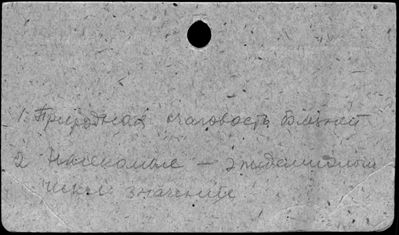 1. Природная очаговость болезней
2 Насекомые – эпидемиологи
ческ. значение